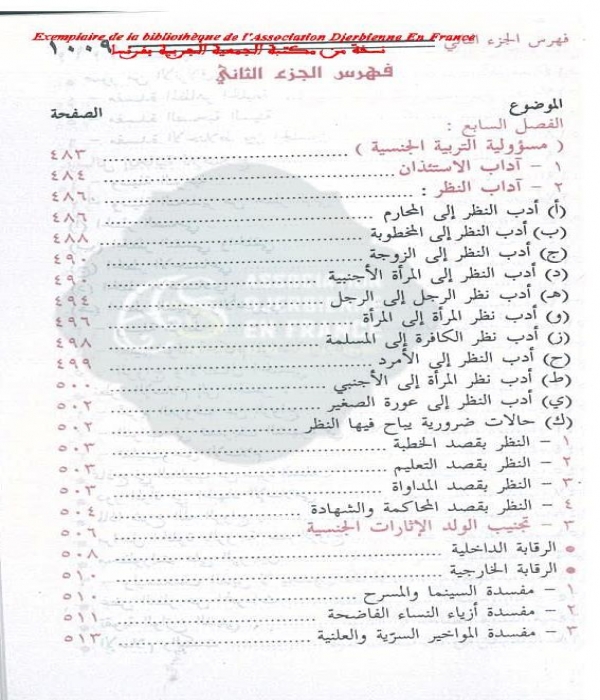 Exemplaire de la bibliothèque de l'Association Djerbienne En France
فهرس الجزء الثاني ١٠٠٩
نسخة من مكتبة الجمعية الجربية بفرنسا
فهرس الجزء الثاني
الموضوع الصفحة
الفصل السابع :
( مسؤولية التربية الجنسية ) ٤٨٣
١ - آداب الاستئذان ٤٨٤
٢ - آداب النظر : ٤٨٦
(أ) أدب النظر إلى المحارم ٤٨٦
(ب) أدب النظر إلى المخطوبة ٤٨٨
(ج) أدب النظر إلى الزوجة ٤٩٠
(د) أدب النظر إلى المرأة الأجنبية ٤٩٠
(هـ) أدب نظر الرجل إلى الرجل ٤٩٤
(و) أدب نظر المرأة إلى المرأة ٤٩٦
(ز) أدب نظر الكافرة إلى المسلمة ٤٩٨
(ح) أدب النظر إلى الأمرد ٤٩٩
(ط) أدب نظر المرأة إلى الأجنبي ٥٠٠
(ي) أدب النظر إلى عورة الصغير ٥٠٢
(ك) حالات ضرورية يباح فيها النظر ٥٠٢
١ - النظر بقصد الخطبة ٥٠٣
٢ - النظر بقصد التعليم ٥٠٣
٣ - النظر بقصد المداواة ٥٠٣
٤ - النظر بقصد المحاكمة والشهادة ٥٠٤
٣ - تجنيب الولد الإثارات الجنسية ٥٠٦
• الرقابة الداخلية ٥٠٨
• الرقابة الخارجية ٥١٠
١ - مفسدة السينما والمسرح ٥١٠
٢ - مفسدة أزياء النساء الفاضحة ٥١١
٣ - مفسدة المواخير السرّية والعلنية ٥١٣
ASSOCIATION
DJERBIENNE
EN FRANCE